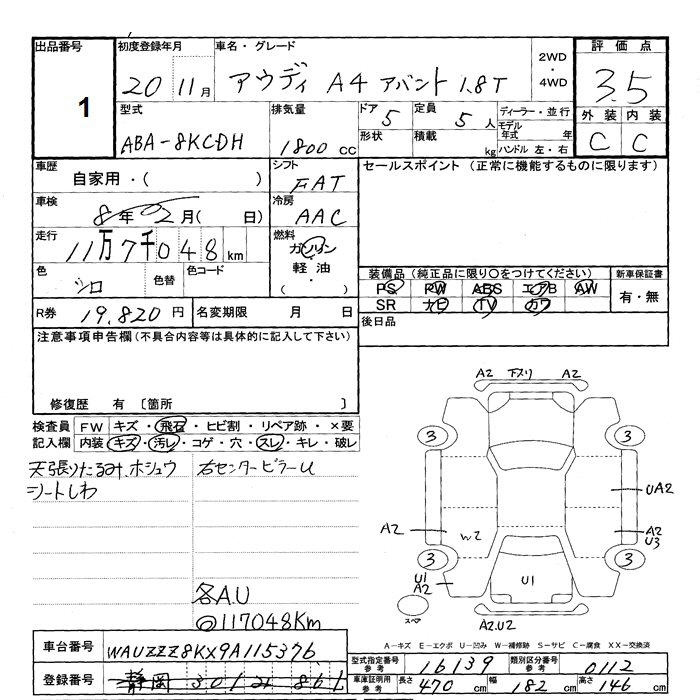 出品番号
1
初度登録年月
20 11月
車名・グレード
アウディ A4 アバント 1.8T
2WD
・
4WD
評価点
3.5
外装 内装
C C
型式
ABA-8KCDH
排気量
1800 cc
ドア 5
形状
定員 5 人
積載 kg
ディーラー・並行
モデル年式 年
ハンドル 左・右
車歴
自家用・( )
シフト
FAT
セールスポイント (正常に機能するものに限ります)
車検
8年 2月( 日)
冷房
AAC
走行
11万7千048km
燃料
ガソリン
軽油
・( )
色
シロ
色替
色コード
装備品 (純正品に限り○をつけてください)
PS PW ABS エアB AW
SR ナビ TV カワ
新車保証書
有・無
R券 19,820円
名変期限 月 日
後日品
注意事項申告欄(不具合内容等は具体的に記入して下さい)
修復歴 有 〔箇所 〕
検査員 FW キズ・飛石・ヒビ割・リペア跡・×要
記入欄 内装 キズ・汚レ・コゲ・穴・スレ・キレ・破レ
天張りたるみ、ホシュウ
シートしわ
右センターピラーU
各A.U
@117048Km
A2 下スリ A2
3 3
UA2
A2 W2 A2
U3
3 3
U1
A2
U1
スペア
A2.U2
A－キズ E－エクボ U－凹み W－補修跡 S－サビ C－腐食 XX－交換済
車台番号 WAUZZZ8KX9A115376
型式指定番号 参考 16139
類別区分番号 参考 0112
登録番号 静岡 301
車庫証明用 参考 長さ 470 cm 幅 182 cm 高さ 146 cm